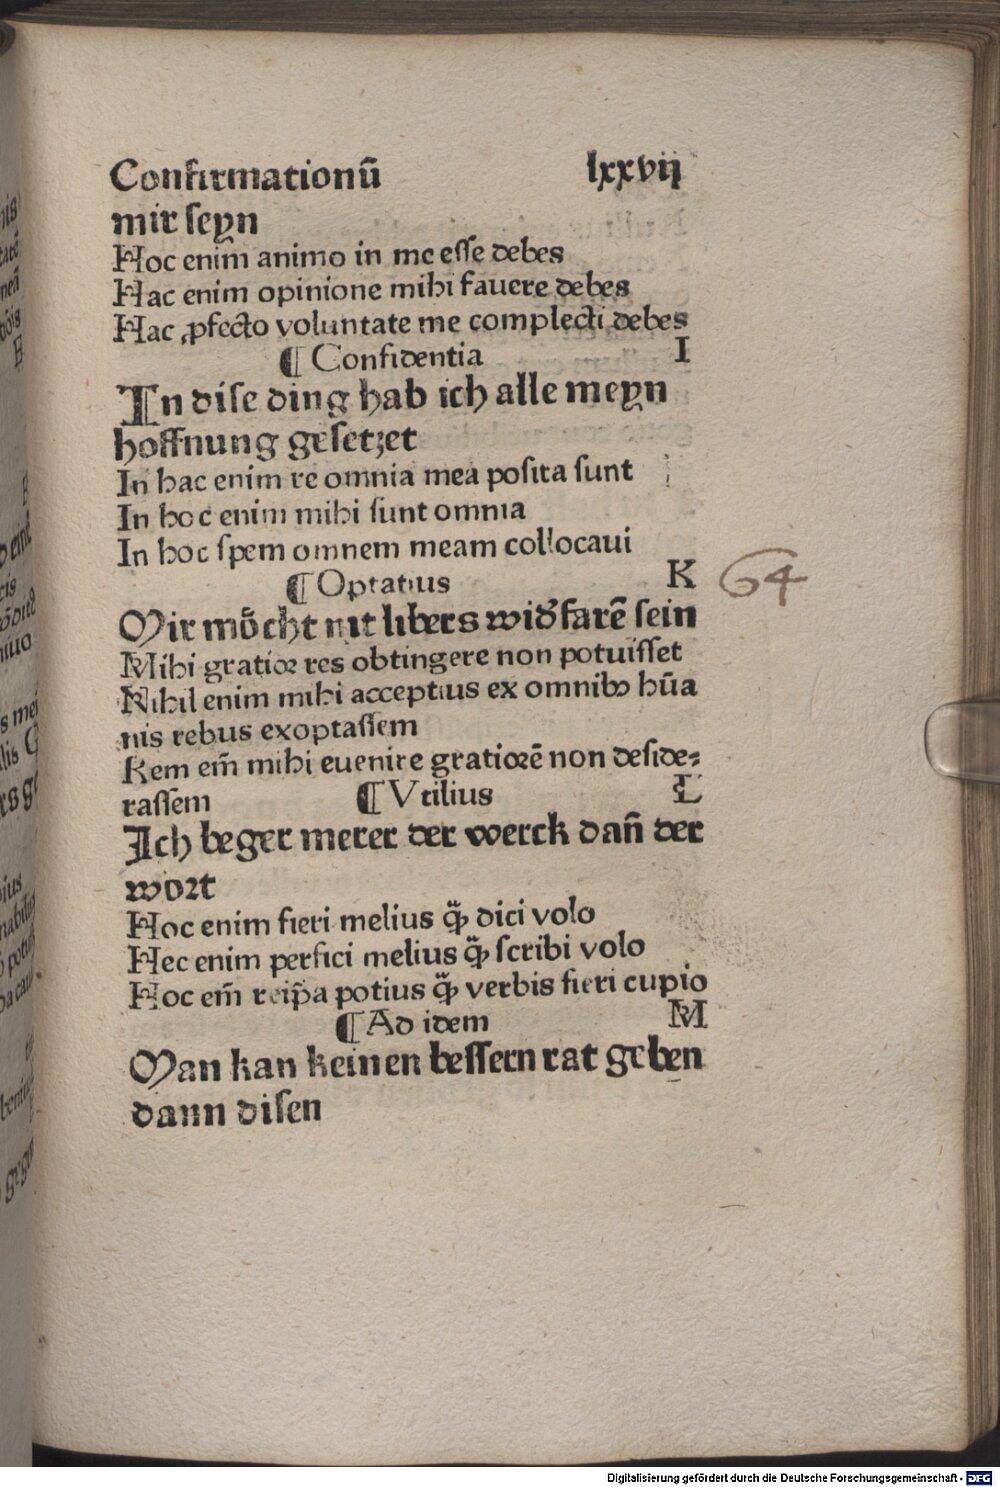 Confirmationū lxxvij
mir seyn
Hoc enim animo in me esse debes
Hac enim opinione mihi fauere debes
Hac ꝓfecto voluntate me complecti debes
¶ Confidentia I
In dise ding hab ich alle meyn
hoffnung gesetzet
In hac enim re omnia mea posita sunt
In hoc enim mihi sunt omnia
In hoc spem omnem meam collocaui
¶ Optatius K
64
Mir moͤcht nit libers widᷣfarē sein
Mihi gratior res obtingere non potuisset
Nihil enim mihi acceptius ex omnibꝰ hūa
nis rebus exoptassem
Rem em̄ mihi euenire gratiorē non deside⸗
rassem ¶ Vtilius L
Ich beger merer der werck dan̄ der
wort
Hoc enim fieri melius q̃ꝫ dici volo
Hec enim perfici melius q̃ꝫ scribi volo
Hoc em̄ reip̄a potius q̃ꝫ verbis fieri cupio
¶ Ad idem M
Man kan keinen bessern rat geben
dann disen
Digitalisierung gefördert durch die Deutsche Forschungsgemeinschaft - DFG